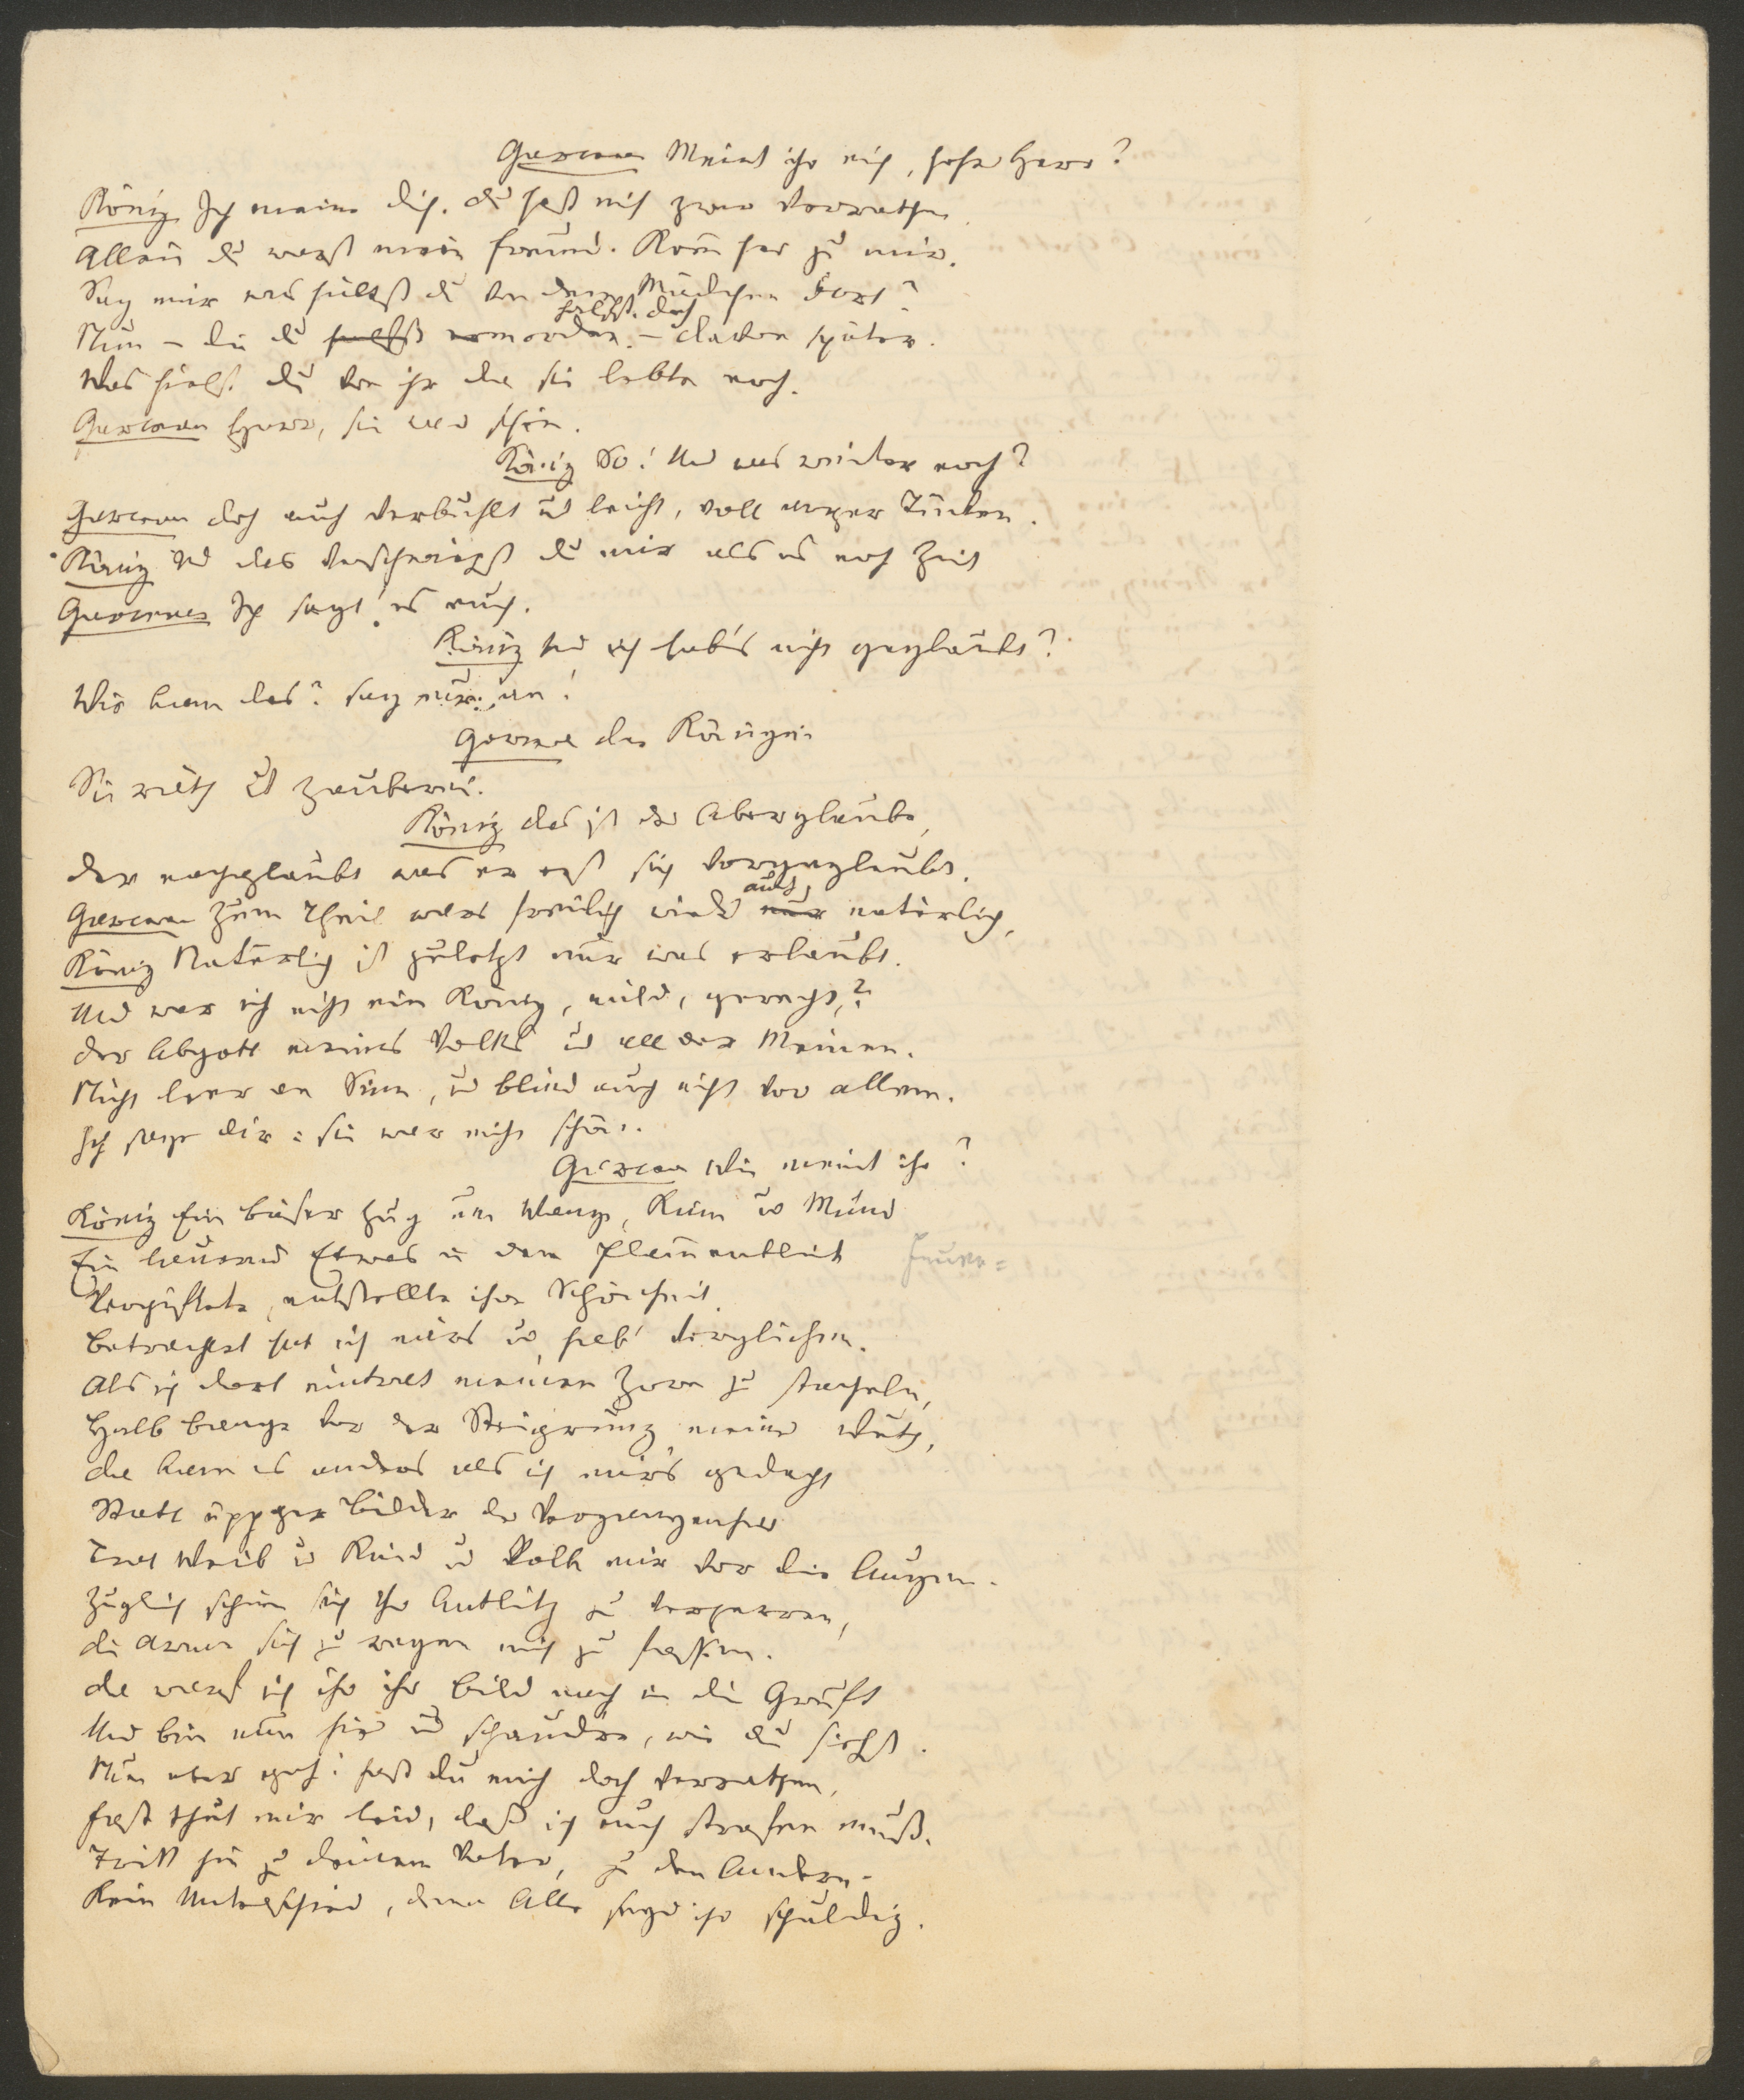 Garceran Meint ihr mich, hoher Herr?
König Ich meine dich. du hast mich zwar verrathen
Allein du warst mein Freund. Kom̄ her zu mir.
Sag mir was hältst du von dem Mädchen dort?
halfst. doch
Nun – die du halfst ermorden. – davon später.
Was hielst du von ihr da sie lebte noch.
Garceran Herr, sie war schön.
König So! Und was weiter noch?
Garceran doch auch verbuhlt und leicht, voll arger Tücken.
König Und das verschwiegst du mir als es noch Zeit
Garceran Ich sagt' es euch.
König Und ich hab's nicht geglaubt?
Wie kam das? sag mir an!
Garceran die Königin
Sie räth auf Zauberei.
König das ist der Aberglaube,
der nachglaubt was er erst sich vorgeglaubt.
auch,
Garceran Zum Theil wars freilich wieder nur natürlich,
König Natürlich ist zuletzt nur was erlaubt.
Und war ich nicht ein König, mild, gerecht,?
der Abgott meines Volks und all der Meinen.
Nicht leer an Sinn, und blind auch nicht vor allem.
Ich sage dir: sie war nicht schön.
Garceran Wie meint ihr?
König Ein böser Zug um Wange, Kinn und Mund
Ein lauernd Etwas in dem Flam̄enblick Feuer=
Vergiftete, entstellte ihre Schönheit.
Betrachtet hat ich mirs und hab' verglichen.
Als ich dort eintrat meinen Zorn zu stacheln,
Halb bange vor der Steigerung meiner Wuth,
da kam es anders als ich mirs gedacht
Statt üppger Bilder der Vergangenheit
Trat Weib und Kind und Volk mir vor die Augen.
Zugleich schien sich ihr Antlitz zu verzerren,
die Arme sich zu regen mich zu fassen.
da warf ich ihr ihr Bild nach in die Gruft
Und bin nun hier und schaudre, wie du siehst.
Nun aber geh! hast du mich doch verrathen,
fast thut mir leid, daß ich euch strafen muß.
Tritt hin zu deinem Vater, zu den Andern.
Kein Unterschied, denn Alle seyd ihr schuldig.